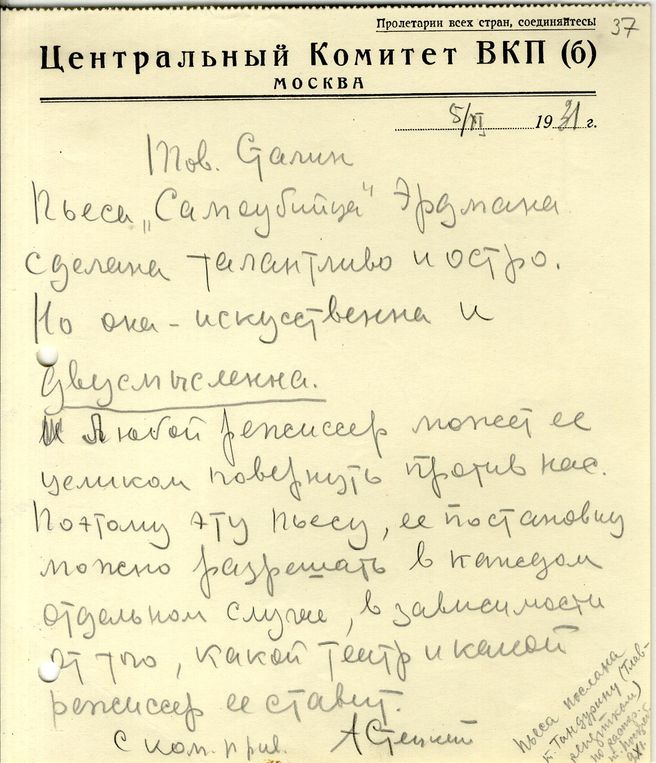 Пролетарии всех стран, соединяйтесь
37
Центральный Комитет ВКП (б)
МОСКВА
5/XI 1931 г.
Тов. Сталин
Пьеса „Самоубийца" Эрдмана
сделана талантливо и остро.
Но она - искусственна и
двусмысленна.
И Любой режиссер может ее
целиком повернуть против нас.
Поэтому эту пьесу, ее постановку
можно разрешать в каждом
отдельном случае, в зависимости
от того, какой театр и какой
режиссер ее ставит.
С ком. прив. А Стецкий
Пьеса послана
т. Гандурину (Глав-
репертком)